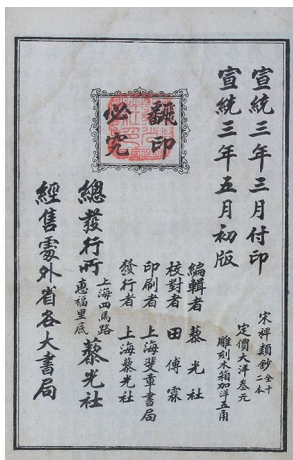 宣統三年三月付印
宣統三年五月初版
宋稗類鈔全十二本
定價大洋叁元
雕刻木箱加洋五角
編輯者 藜光社
校對者 田傅霖
印刷者 上海斐章書局
發行者 上海藜光社
翻印
必究
總發行所 上海四馬路惠福里底 藜光社
經售處外省各大書局